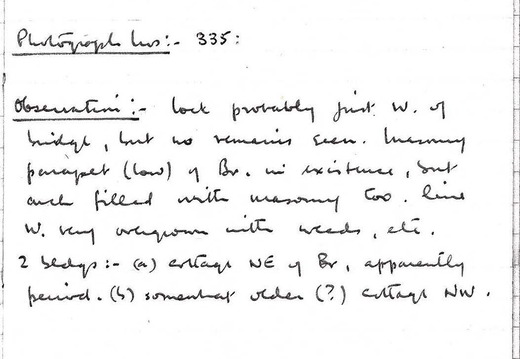 Photograph nos:- 335:
Observation:- lock probably just W. of
bridge, but no remains seen. Masonry
parapet (low) of Br. in existence, but
arch filled with masonry too. Line
W. very overgrown with weeds, etc.
2 bldgs:- (a) cottage NE of Br, apparently
period. (b) somewhat older (?) cottage NW.